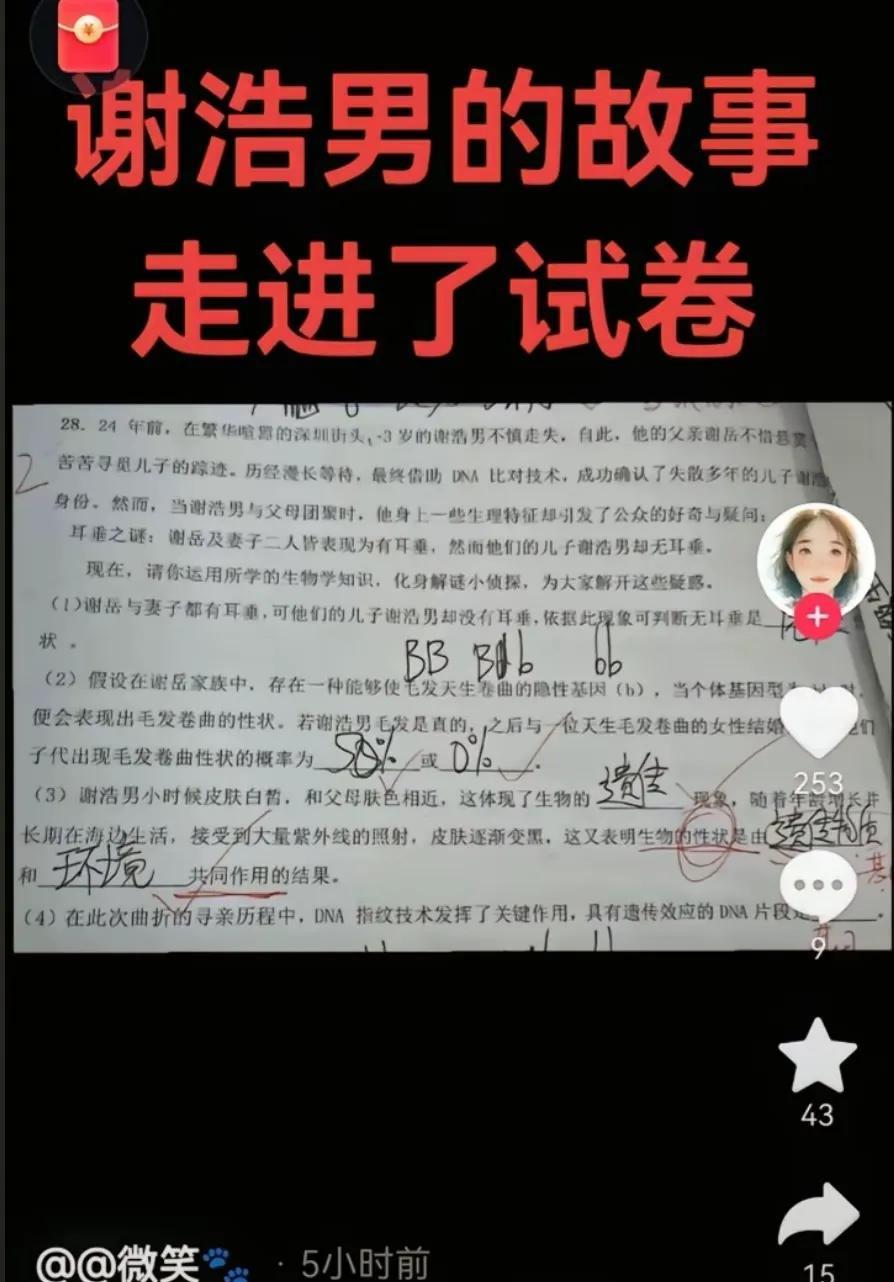 ¥
谢浩男的故事
走进了试卷
28. 24 年前，在繁华喧嚣的深圳街头，3 岁的谢浩男不慎走失，自此，他的父亲谢岳不惜悬赏
2
苦苦寻觅儿子的踪迹。历经漫长等待，最终借助 DNA 比对技术，成功确认了失散多年的儿子谢浩
身份。然而，当谢浩男与父母团聚时，他身上一些生理特征却引发了公众的好奇与疑问：
耳垂之谜：谢岳及妻子二人皆表现为有耳垂，然而他们的儿子谢浩男却无耳垂。
现在，请你运用所学的生物学知识，化身解谜小侦探，为大家解开这些疑惑。
（1）谢岳与妻子都有耳垂，可他们的儿子谢浩男却没有耳垂，依据此现象可判断无耳垂是
状。
BB Bb bb
（2）假设在谢岳家族中，存在一种能够使毛发天生卷曲的隐性基因（b），当个体基因型
便会表现出毛发卷曲的性状。若谢浩男毛发是真的，之后与一位天生毛发卷曲的女性结婚
子代出现毛发卷曲性状的概率为 50% 或 0% .
（3）谢浩男小时候皮肤白皙，和父母肤色相近，这体现了生物的 遗传 现象，随着年龄增长并
长期在海边生活，接受到大量紫外线的照射，皮肤逐渐变黑，这又表明生物的性状是由 遗传物质
和 环境 共同作用的结果。
（4）在此次曲折的寻亲历程中，DNA 指纹技术发挥了关键作用，具有遗传效应的 DNA 片段是 。
253
9
43
15
@@微笑🐾 · 5小时前